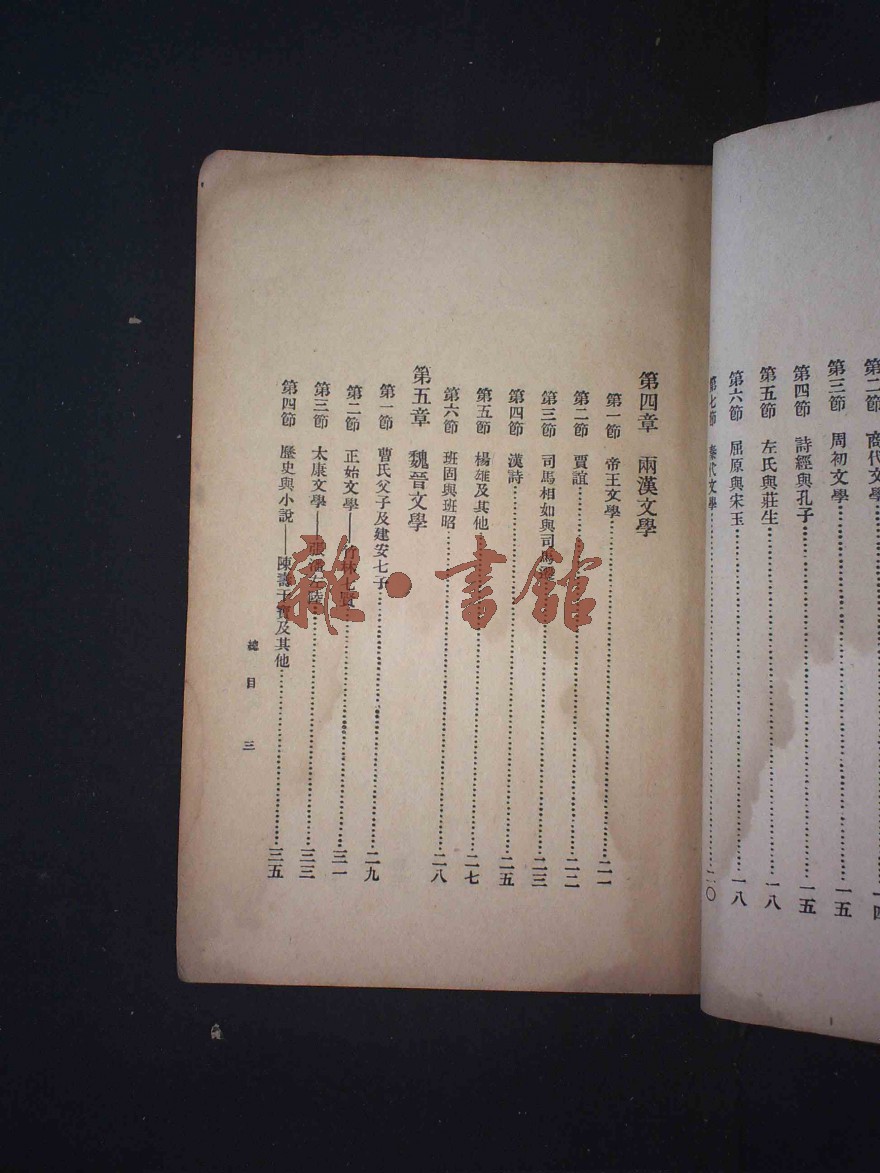 第二節　商代文學……一四
第三節　周初文學……一五
第四節　詩經與孔子……一五
第五節　左氏與莊生……一八
第六節　屈原與宋玉……一八
第七節　秦代文學……二〇
第四章　兩漢文學
第一節　帝王文學……二一
第二節　賈誼……二二
第三節　司馬相如與司馬遷……二三
第四節　漢詩……二五
第五節　楊雄及其他……二七
第六節　班固與班昭……二八
第五章　魏晉文學
第一節　曹氏父子及建安七子……二九
第二節　正始文學——竹林七賢……三一
第三節　太康文學——張潘左陸……三三
第四節　歷史與小說——陳壽干寶及其他……三五
總目　三
雜·書館